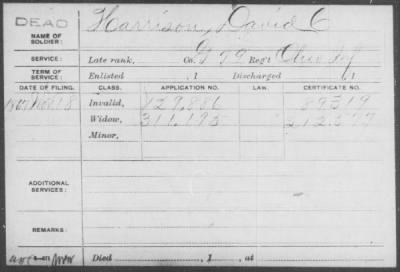 DEAD
NAME OF SOLDIER: Harrison, David C
SERVICE: Late rank, Co. G 79 Reg't Ohio Inf
TERM OF SERVICE: Enlisted , 1 Discharged , 1
DATE OF FILING. CLASS. APPLICATION NO. LAW. CERTIFICATE NO.
1867 Nov 18 Invalid, 129,886 89319
Widow, 311,195 212,577
Minor,
ADDITIONAL SERVICES:
REMARKS:
Died , 1 , at